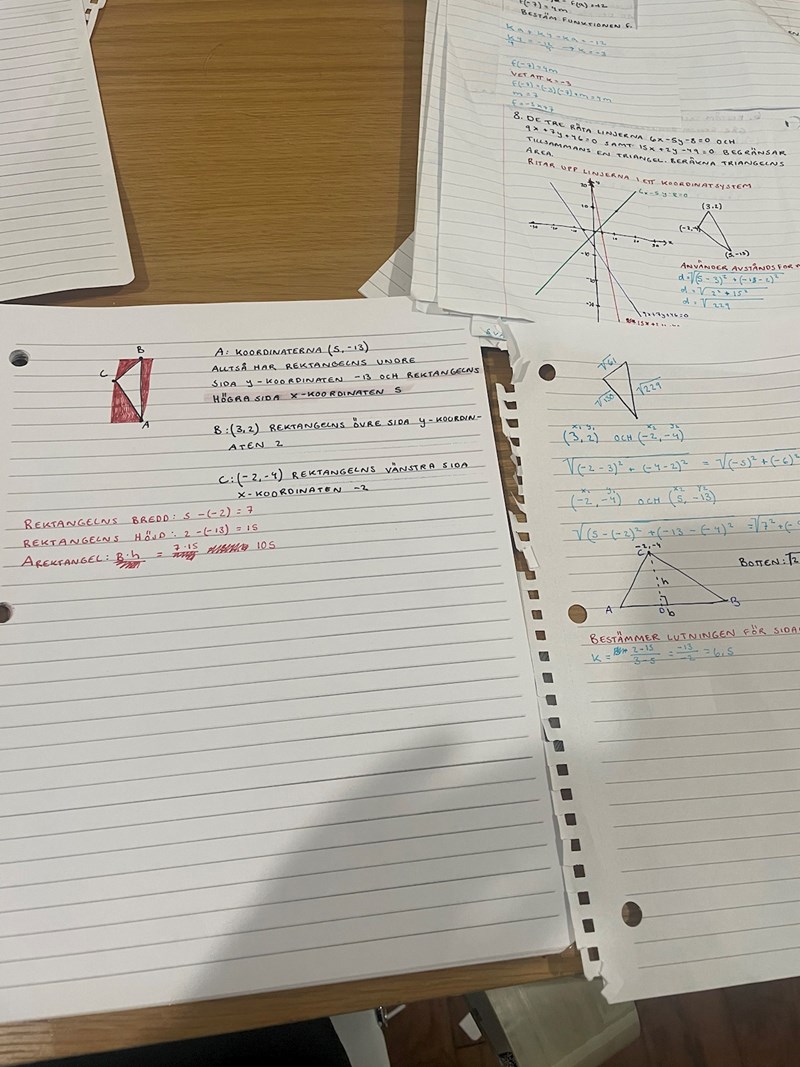 BESTÄM FUNKTIONEN F.
VET ATT K=-3
8. DE TRE RÄTA LINJERNA 6x-5y-8=0 OCH
9x+7y+46=0 SAMT 15x+2y-49=0 BEGRÄNSAR
TILLSAMMANS EN TRIANGEL. BERÄKNA TRIANGELNS
AREA.
RITAR UPP LINJERNA I ETT KOORDINATSYSTEM
(3,2)
(5,-13)
ANVÄNDER AVSTÅNDSFOR
d=√(5-3)²+(-13-2)²
d=√2²+15²
d=√229
B
C
A
A: KOORDINATERNA (5,-13)
ALLTSÅ HAR REKTANGELNS UNDRE
SIDA Y-KOORDINATEN -13 OCH REKTANGELNS
HÖGRA SIDA X-KOORDINATEN 5
B:(3,2) REKTANGELNS ÖVRE SIDA Y-KOORDIN-
ATEN 2
C:(-2,-4) REKTANGELNS VÄNSTRA SIDA
X-KOORDINATEN -2
REKTANGELNS BREDD: 5-(-2)=7
REKTANGELNS HÖJD: 2-(-13)=15
AREKTANGEL: B·h = 7·15 105
√61
√130
√229
x₁ y₁ x₂ y₂
(3,2) OCH (-2,-4)
√(-2-3)²+(-4-2)² = √(-5)²+(-6)²
x₁ y₁ x₂ y₂
(-2,-4) OCH (5,-13)
√(5-(-2)²+(-13-(-4)² =√7²+(-
-2,-4
C
h
BOTTEN:√2
A
b
B
BESTÄMMER LUTNINGEN FÖR SIDA
K= 2-15/3-5 = -13/-2 =6,5